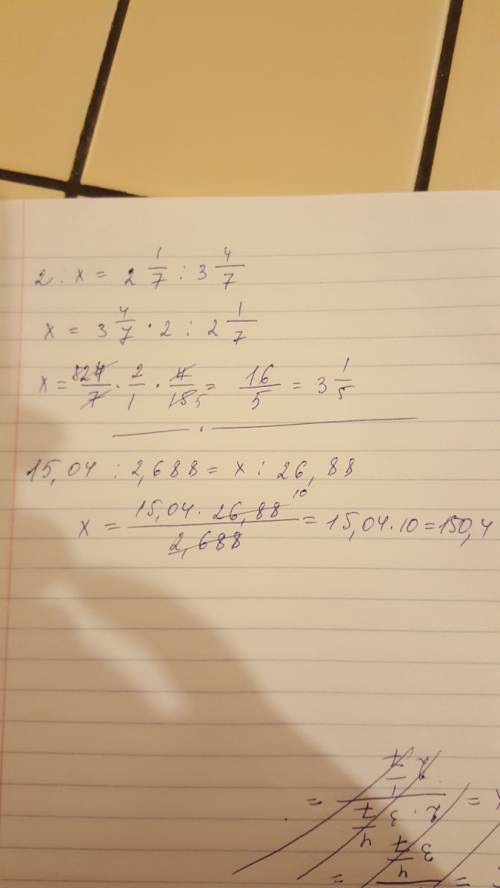 2 : x = 2 1/7 : 3 4/7
x = 3 4/7 · 2 : 2 1/7
x = 8 24/7 · 2/1 · 7/15 5 = 16/5 = 3 1/5
15,04 : 2,688 = x : 26,88
x = 15,04 · 26,88 10 / 2,688 = 15,04 · 10 = 150,4